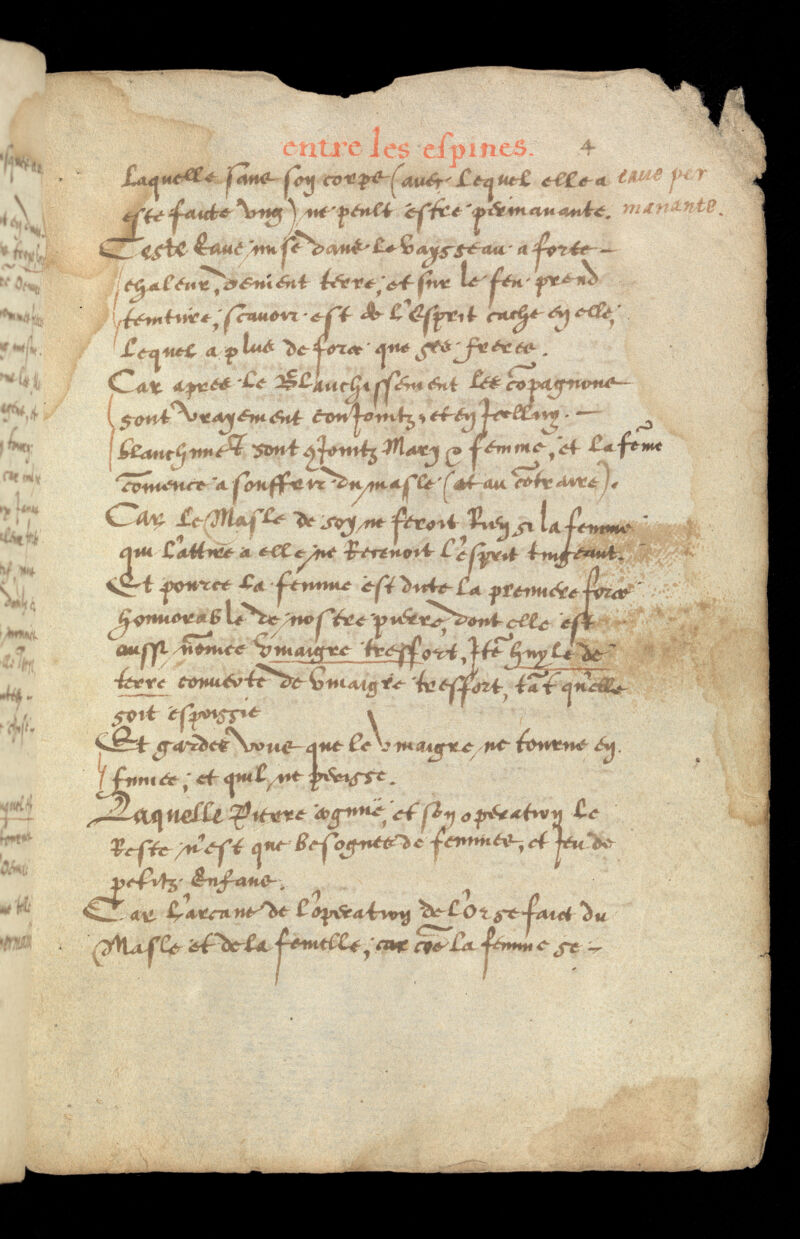 entre les espines. 4
Laquelle sans son corps (avec lequel elle a eaue per
este faicte vng) ne peult estre permanante. manante.
Ceste Eaue mise dans le vaysseau a forte -
chaleur, devient terre, et sur le feu prend
teinture, scavoir est de l'Esprit cache en elle,
Lequel a plus de force que ses freres.
Car apres le Blanchissement les cōpagnons
sont vrayement conJointz, et en Jcelluy. -
blanchimēt sont Jointz Mary & femme, et la fēme
cōmence a souffrir du masle (et au cōtraire).
Car le Masle de soy ne feroit Rien si la femme
qui l'attire a elle ne Recevoit l'esprit tingeant.
Et pource la femme est dicte la premiere force
honnorable de nostre pierre, dont elle est
aussi nōmee vinaigre tresfort, Jtē huyle de
terre couverte de vinaigre tresfort, tāt qu'elle
soit espoissie
Et gardes vous que le vinaigre ne tourne en
fumee, et quil ne perisse.
Laquelle Pierre cognue, et son operation le
Reste n'est que besognes de femmes, et Jeu de
petitz Enfans.
Car l'arcane de l'operation de l'Or se faict du
Masle et de la femelle, car cōe la femme se -